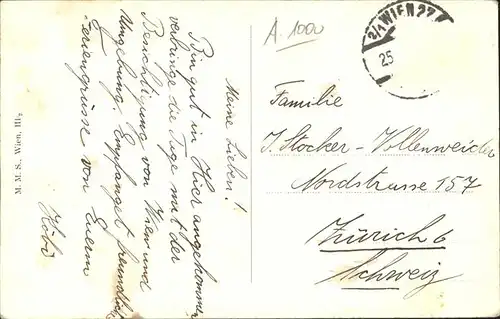 Meine Lieben!
Bin gut in Hier angekommen
verbringe die Tage mit der
Besichtigung von Wien und
Umgebung. Empfanget freundliche
Feriengrüsse von Euerm
A 1000
2/1 WIEN 27
25
Familie
J. Stocker-Vollenweider
Nordstrasse 157
Zürich 6
Schweiz
M. M. S. Wien, III/2